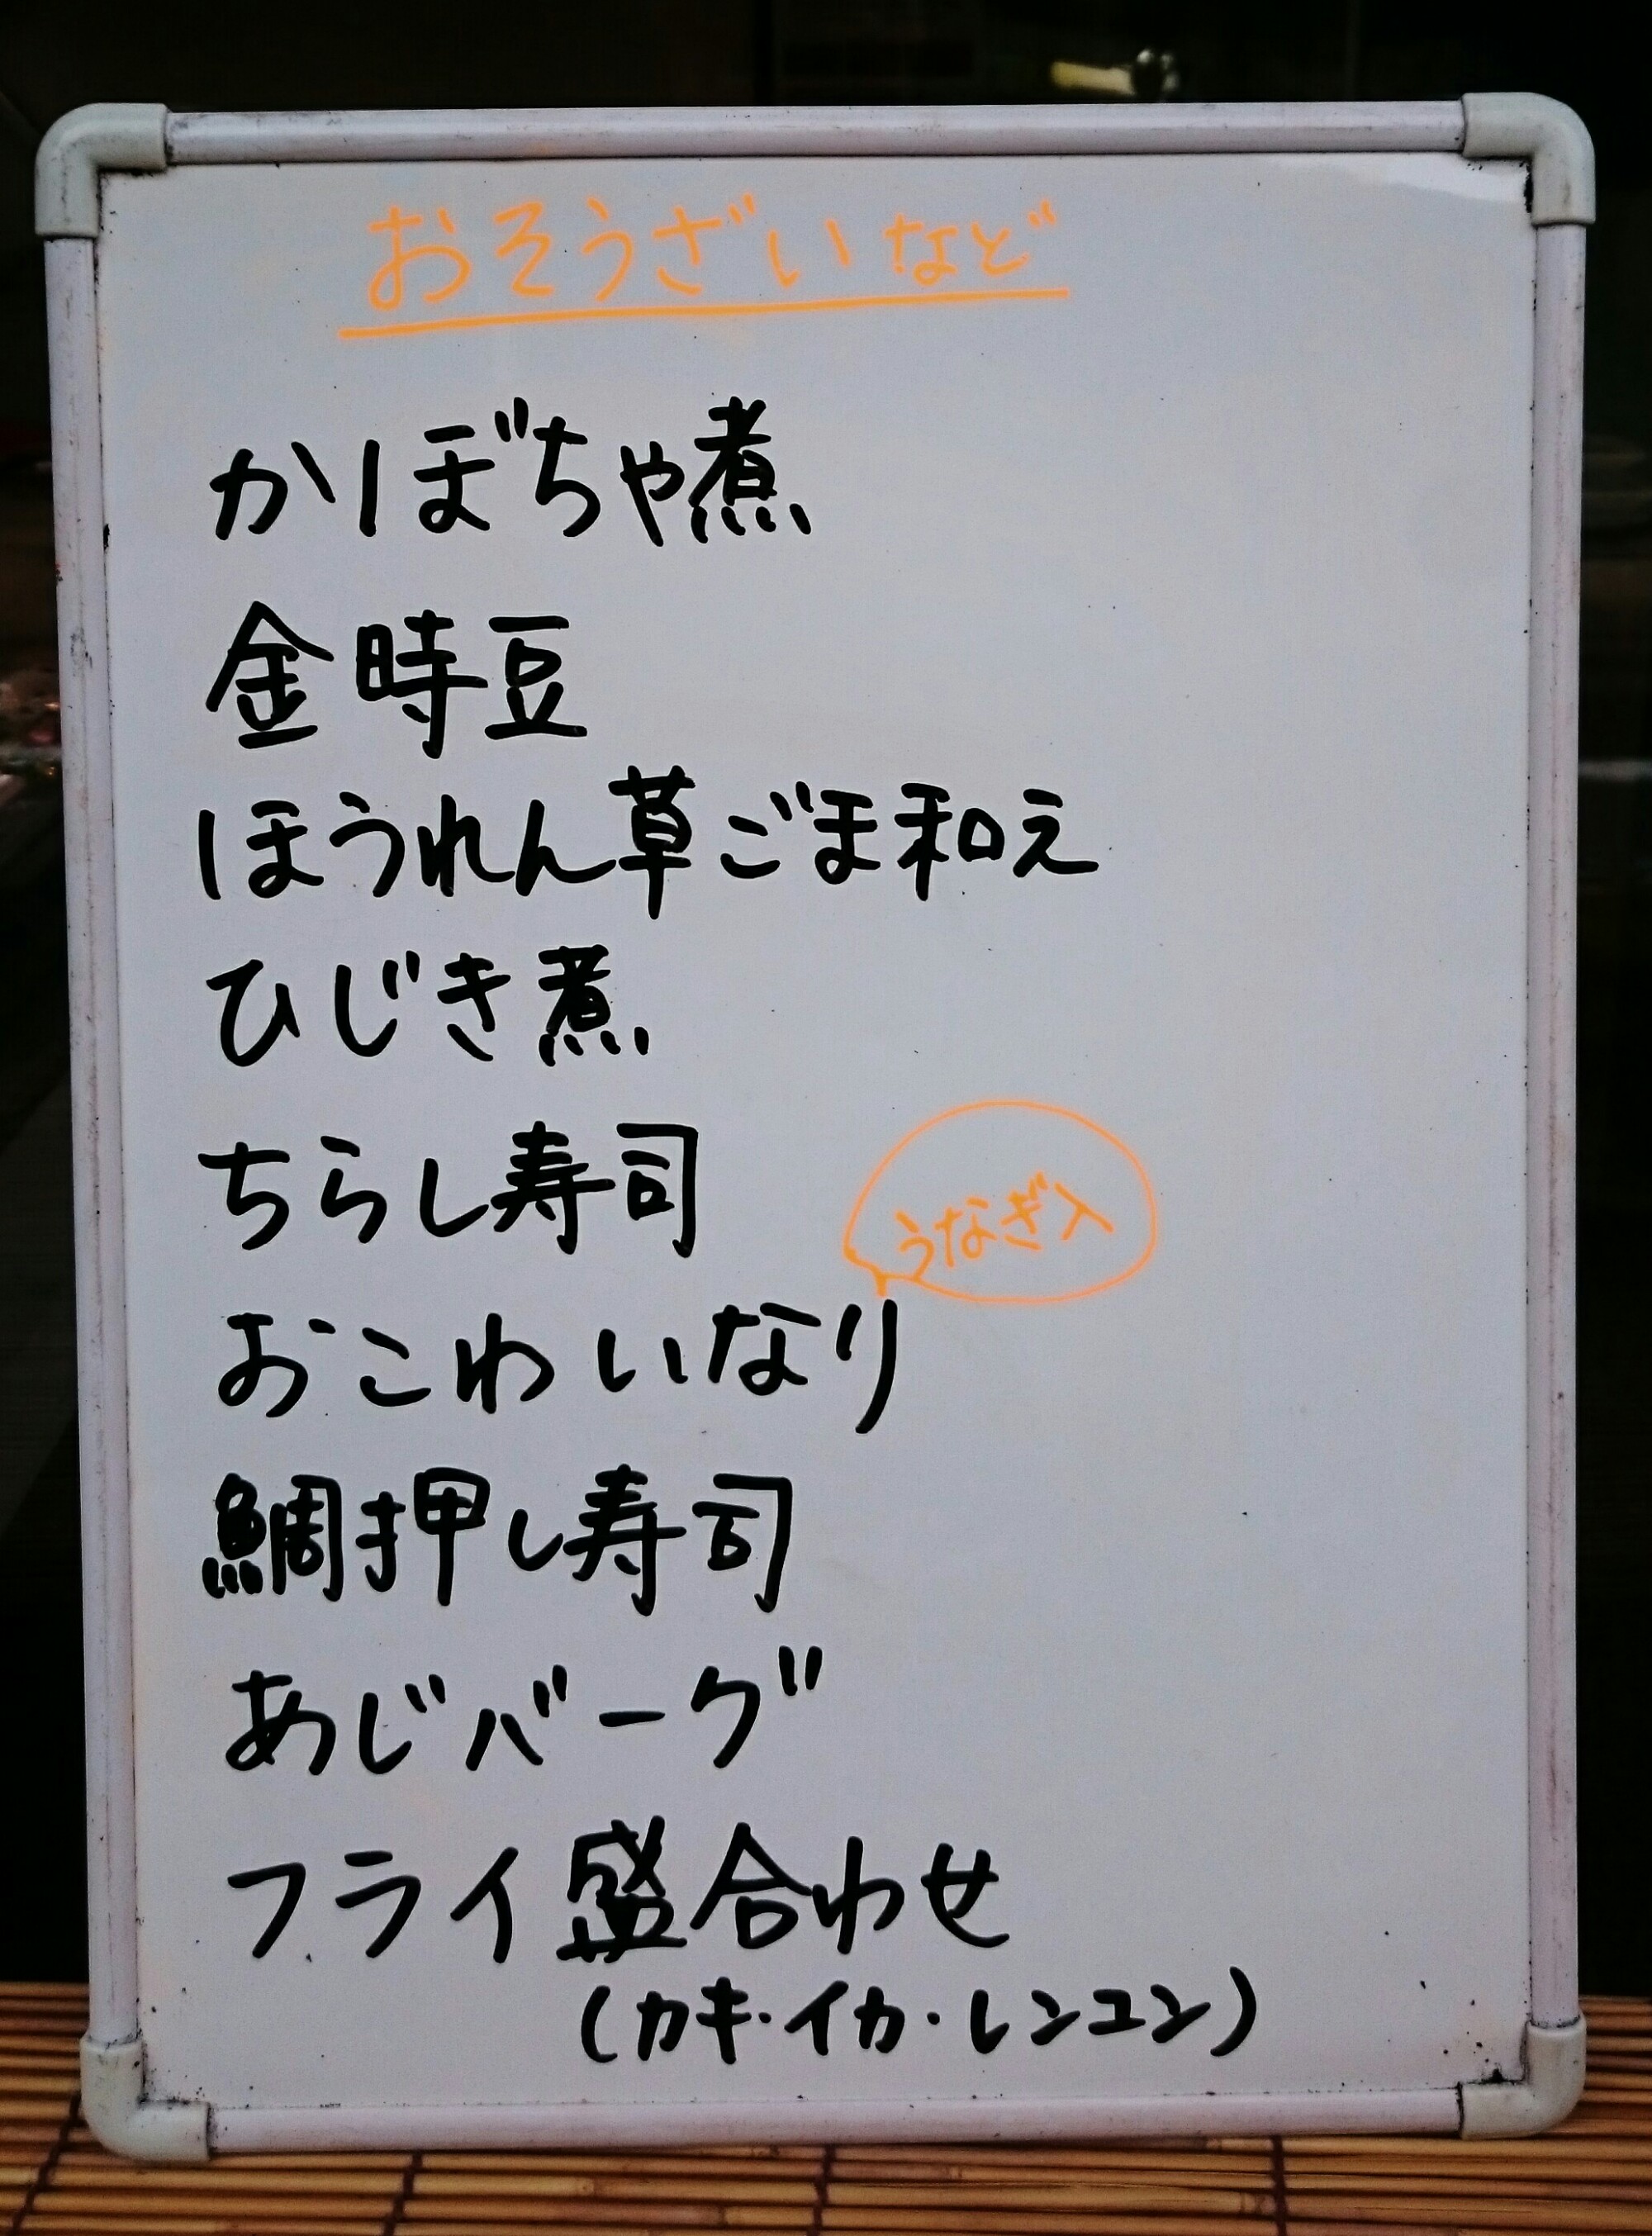 おそうざいなど
かぼちゃ煮
金時豆
ほうれん草ごま和え
ひじき煮
ちらし寿司
うなぎ入
おこわいなり
鯛押し寿司
あじバーグ
フライ盛合わせ
(カキ・イカ・レンコン)